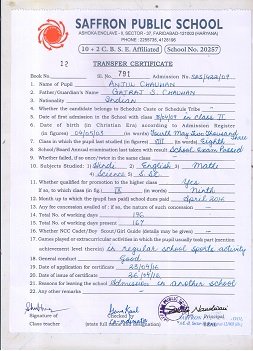 SAFFRON PUBLIC SCHOOL
ASHOKA ENCLAVE - II, SECTOR - 37, FARIDABAD-121003 (HARYANA)
PHONE : 2255735, 4128196
10 + 2 C. B. S. E. Affiliated School No. 20257
TRANSFER CERTIFICATE
Book No. 12 Sl. No. 791 Admission No. SPS/422/09
1. Name of Pupil ANJUL CHAUHAN
2. Father/Guardian's Name S. CHAUHAN
3. Nationality Indian
4. Whether the candidate belongs to Schedule Caste or Schedule Tribe
5. Date of first admission in the School with class in class II
6. Date of birth (in Christian Era) according to Admission Register
(in figures) 04/05/03 (in words) Fourth May Two Thousand Three
7. Class in which the pupil last studied (in figures) VIII (in words) Eighth
8. School/Board Annual examination last taken with result School exam Passed
9. Whether failed, if so once/twice in the same class
10. Subjects Studied : 1) Hindi 2) English 3) Maths
4) Science 5) S.St.
11. Whether qualified for promotion to the higher class Yes
if so, to which class (in fig.) IX (in words) Ninth
12. Month upto which the (pupil has paid) school dues paid April 2016
13. Any fee concession availed of : if so, the nature of such concession
14. Total No. of working days 196
15. Total No. of working days present 167
16. Whether NCC Cadet/Boy Scout/Girl Guide (details may be given)
17. Games played or extracurricular activities in which the pupil usually took part (mention
achievement level therein) in regular school sports activity
18. General conduct Good
19. Date of application of certificate 23/04/16
20. Date of issue of certificate 26/04/16
21. Reasons for leaving the school Admission in another school
22. Any other remarks
Signature of Checked by
Class teacher Principal